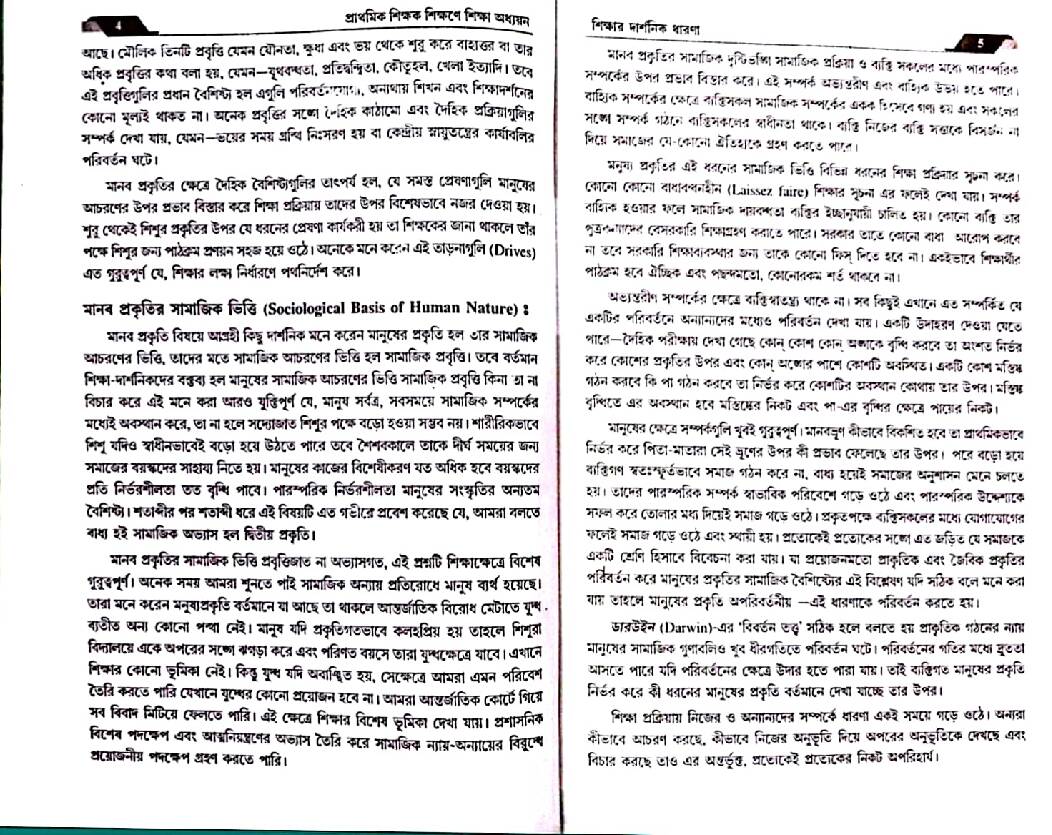 4
প্রাথমিক শিক্ষক শিক্ষণে শিক্ষা অধ্যয়ন
আছে। মৌলিক তিনটি প্রবৃত্তি যেমন যৌনতা, ক্ষুধা এবং ভয় থেকে শুরু করে বাহাত্তর বা তার
অধিক প্রবৃত্তির কথা বলা হয়, যেমন—যূথবদ্ধতা, প্রতিদ্বন্দ্বিতা, কৌতূহল, খেলা ইত্যাদি। তবে
এই প্রবৃত্তিগুলির প্রধান বৈশিষ্ট্য হল এগুলি পরিবর্তনযোগ্য, অন্যথায় শিখন এবং শিক্ষাদর্শনের
কোনো মূল্যই থাকত না। অনেক প্রবৃত্তির সঙ্গে দৈহিক কাঠামো এবং দৈহিক প্রক্রিয়াগুলির
সম্পর্ক দেখা যায়, যেমন—ভয়ের সময় গ্রন্থি নিঃসরণ হয় বা কেন্দ্রীয় স্নায়ুতন্ত্রের কার্যাবলির
পরিবর্তন ঘটে।
মানব প্রকৃতির ক্ষেত্রে দৈহিক বৈশিষ্ট্যগুলির তাৎপর্য হল, যে সমস্ত প্রেষণাগুলি মানুষের
আচরণের উপর প্রভাব বিস্তার করে শিক্ষা প্রক্রিয়ায় তাদের উপর বিশেষভাবে নজর দেওয়া হয়।
শুরু থেকেই শিশুর প্রকৃতির উপর যে ধরনের প্রেষণা কার্যকরী হয় তা শিক্ষকের জানা থাকলে তাঁর
পক্ষে শিশুর জন্য পাঠক্রম প্রণয়ন সহজ হয়ে ওঠে। অনেকে মনে করেন এই তাড়নাগুলি (Drives)
এত গুরুত্বপূর্ণ যে, শিক্ষার লক্ষ্য নির্ধারণে পথনির্দেশ করে।
মানব প্রকৃতির সামাজিক ভিত্তি (Sociological Basis of Human Nature) :
মানব প্রকৃতি বিষয়ে আগ্রহী কিছু দার্শনিক মনে করেন মানুষের প্রকৃতি হল তার সামাজিক
আচরণের ভিত্তি, তাদের মতে সামাজিক আচরণের ভিত্তি হল সামাজিক প্রবৃত্তি। তবে বর্তমান
শিক্ষা-দার্শনিকদের বক্তব্য হল মানুষের সামাজিক আচরণের ভিত্তি সামাজিক প্রবৃত্তি কিনা তা না
বিচার করে এই মনে করা আরও যুক্তিপূর্ণ যে, মানুষ সর্বত্র, সবসময়ে সামাজিক সম্পর্কের
মধ্যেই অবস্থান করে, তা না হলে সদ্যোজাত শিশুর পক্ষে বড়ো হওয়া সম্ভব নয়। শারীরিকভাবে
শিশু যদিও স্বাধীনভাবেই বড়ো হয়ে উঠতে পারে তবে শৈশবকালে তাকে দীর্ঘ সময়ের জন্য
সমাজের বয়স্কদের সাহায্য নিতে হয়। মানুষের কাজের বিশেষীকরণ যত অধিক হবে বয়স্কদের
প্রতি নির্ভরশীলতা তত বৃদ্ধি পাবে। পারস্পরিক নির্ভরশীলতা মানুষের সংস্কৃতির অন্যতম
বৈশিষ্ট্য। শতাব্দীর পর শতাব্দী ধরে এই বিষয়টি এত গভীরে প্রবেশ করেছে যে, আমরা বলতে
বাধ্য হই সামাজিক অভ্যাস হল দ্বিতীয় প্রকৃতি।
মানব প্রকৃতির সামাজিক ভিত্তি প্রবৃত্তিজাত না অভ্যাসগত, এই প্রশ্নটি শিক্ষাক্ষেত্রে বিশেষ
গুরুত্বপূর্ণ। অনেক সময় আমরা শুনতে পাই সামাজিক অন্যায় প্রতিরোধে মানুষ ব্যর্থ হয়েছে।
তারা মনে করেন মনুষ্যপ্রকৃতি বর্তমানে যা আছে তা থাকলে আন্তর্জাতিক বিরোধ মেটাতে যুদ্ধ
ব্যতীত অন্য কোনো পন্থা নেই। মানুষ যদি প্রকৃতিগতভাবে কলহপ্রিয় হয় তাহলে শিশুরা
বিদ্যালয়ে একে অপরের সঙ্গে ঝগড়া করে এবং পরিণত বয়সে তারা যুদ্ধক্ষেত্রে যাবে। এখানে
শিক্ষার কোনো ভূমিকা নেই। কিন্তু যুদ্ধ যদি অবাঞ্ছিত হয়, সেক্ষেত্রে আমরা এমন পরিবেশ
তৈরি করতে পারি যেখানে যুদ্ধের কোনো প্রয়োজন হবে না। আমরা আন্তর্জাতিক কোর্টে গিয়ে
সব বিবাদ মিটিয়ে ফেলতে পারি। এই ক্ষেত্রে শিক্ষার বিশেষ ভূমিকা দেখা যায়। প্রশাসনিক
বিশেষ পদক্ষেপ এবং আত্মনিয়ন্ত্রণের অভ্যাস তৈরি করে সামাজিক ন্যায়-অন্যায়ের বিরুদ্ধে
প্রয়োজনীয় পদক্ষেপ গ্রহণ করতে পারি।
শিক্ষার দার্শনিক ধারণা
5
মানব প্রকৃতির সামাজিক দৃষ্টিভঙ্গি সামাজিক প্রক্রিয়া ও ব্যক্তি সকলের মধ্যে পারস্পরিক
সম্পর্কের উপর প্রভাব বিস্তার করে। এই সম্পর্ক অভ্যন্তরীণ এবং বাহ্যিক উভয় হতে পারে।
বাহ্যিক সম্পর্কের ক্ষেত্রে ব্যক্তিসকল সামাজিক সম্পর্কের একক হিসেবে গণ্য হয় এবং সকলের
সঙ্গে সম্পর্ক গঠনে ব্যক্তিসকলের স্বাধীনতা থাকে। ব্যক্তি নিজের ব্যক্তি সত্তাকে বিসর্জন না
দিয়ে সমাজের যে-কোনো ঐতিহ্যকে গ্রহণ করতে পারে।
মনুষ্য প্রকৃতির এই ধরনের সামাজিক ভিত্তি বিভিন্ন ধরনের শিক্ষা প্রক্রিয়ার সূচনা করে।
কোনো কোনো বাধাবন্ধনহীন (Laissez faire) শিক্ষার সূচনা এর ফলেই দেখা যায়। সম্পর্ক
বাহ্যিক হওয়ার ফলে সামাজিক দায়বদ্ধতা ব্যক্তির ইচ্ছানুযায়ী চালিত হয়। কোনো ব্যক্তি তার
পুত্রকন্যাদের বেসরকারি শিক্ষাগ্রহণ করাতে পারে। সরকার তাতে কোনো বাধা আরোপ করবে
না তবে সরকারি শিক্ষাব্যবস্থার জন্য তাকে কোনো ফিস্ দিতে হবে না। একইভাবে শিক্ষার্থীর
পাঠক্রম হবে ঐচ্ছিক এবং পছন্দমতো, কোনোরকম শর্ত থাকবে না।
অভ্যন্তরীণ সম্পর্কের ক্ষেত্রে ব্যক্তিস্বাতন্ত্র্য থাকে না। সব কিছুই এখানে এত সম্পর্কিত যে
একটির পরিবর্তনে অন্যান্যদের মধ্যেও পরিবর্তন দেখা যায়। একটি উদাহরণ দেওয়া যেতে
পারে—দৈহিক পরীক্ষায় দেখা গেছে কোন্ কোশ কোন্ অঙ্গকে বৃদ্ধি করবে তা অংশত নির্ভর
করে কোশের প্রকৃতির উপর এবং কোন্ অঙ্গের পাশে কোশটি অবস্থিত। একটি কোশ মস্তিষ্ক
গঠন করবে কি পা গঠন করবে তা নির্ভর করে কোশটির অবস্থান কোথায় তার উপর। মস্তিষ্ক
বৃদ্ধিতে এর অবস্থান হবে মস্তিষ্কের নিকট এবং পা-এর বৃদ্ধির ক্ষেত্রে পায়ের নিকট।
মানুষের ক্ষেত্রে সম্পর্কগুলি খুবই গুরুত্বপূর্ণ। মানবভ্রূণ কীভাবে বিকশিত হবে তা প্রাথমিকভাবে
নির্ভর করে পিতা-মাতারা সেই ভ্রূণের উপর কী প্রভাব ফেলেছে তার উপর। পরে বড়ো হয়ে
ব্যক্তিগণ স্বতঃস্ফূর্তভাবে সমাজ গঠন করে না, বাধ্য হয়েই সমাজের অনুশাসন মেনে চলতে
হয়। তাদের পারস্পরিক সম্পর্ক স্বাভাবিক পরিবেশে গড়ে ওঠে এবং পারস্পরিক উদ্দেশ্যকে
সফল করে তোলার মধ্য দিয়েই সমাজ গড়ে ওঠে। প্রকৃতপক্ষে ব্যক্তিসকলের মধ্যে যোগাযোগের
ফলেই সমাজ গড়ে ওঠে এবং স্থায়ী হয়। প্রত্যেকেই প্রত্যেকের সঙ্গে এত জড়িত যে সমাজকে
একটি শ্রেণি হিসাবে বিবেচনা করা যায়। যা প্রয়োজনমতো প্রাকৃতিক এবং জৈবিক প্রকৃতির
পরিবর্তন করে মানুষের প্রকৃতির সামাজিক বৈশিষ্ট্যের এই বিশ্লেষণ যদি সঠিক বলে মনে করা
যায় তাহলে মানুষের প্রকৃতি অপরিবর্তনীয় —এই ধারণাকে পরিবর্তন করতে হয়।
ডারউইন (Darwin)-এর ‘বিবর্তন তত্ত্ব’ সঠিক হলে বলতে হয় প্রাকৃতিক গঠনের ন্যায়
মানুষের সামাজিক গুণাবলিও খুব ধীরগতিতে পরিবর্তন ঘটে। পরিবর্তনের গতির মধ্যে দ্রুততা
আসতে পারে যদি পরিবর্তনের ক্ষেত্রে উদার হতে পারা যায়। তাই ব্যক্তিগত মানুষের প্রকৃতি
নির্ভর করে কী ধরনের মানুষের প্রকৃতি বর্তমানে দেখা যাচ্ছে তার উপর।
শিক্ষা প্রক্রিয়ায় নিজের ও অন্যান্যদের সম্পর্কে ধারণা একই সময়ে গড়ে ওঠে। অন্যরা
কীভাবে আচরণ করছে, কীভাবে নিজের অনুভূতি দিয়ে অপরের অনুভূতিকে দেখছে এবং
বিচার করছে তাও এর অন্তর্ভুক্ত, প্রত্যেকেই প্রত্যেকের নিকট অপরিহার্য।